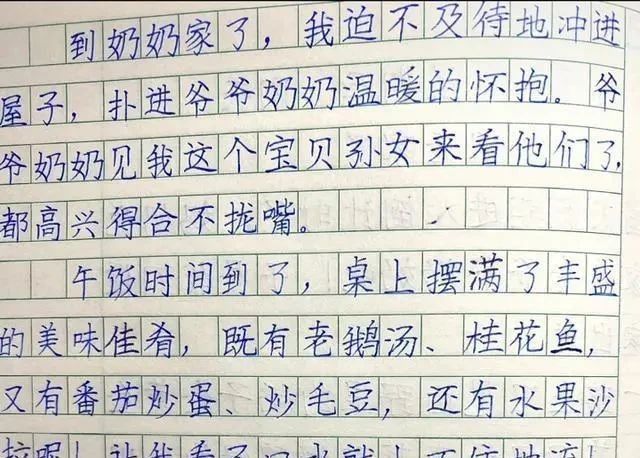 到奶奶家了，我迫不及待地冲进
屋子，扑进爷爷奶奶温暖的怀抱。爷
爷奶奶见我这个宝贝孙女来看他们了，
都高兴得合不拢嘴。
午饭时间到了，桌上摆满了丰盛
的美味佳肴，既有老鹅汤、桂花鱼，
又有番茄炒蛋、炒毛豆，还有水果沙
拉呢！让我看了口水就止不住地流！